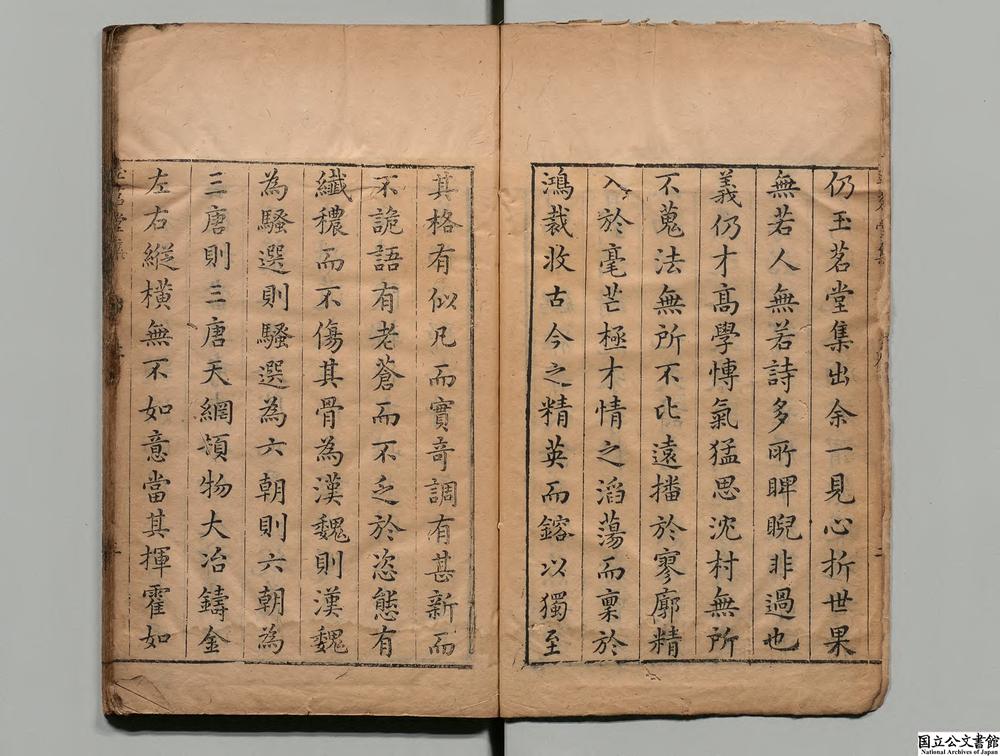 仍玉茗堂集出余一見心折世果
無若人無若詩多所睥睨非過也
義仍才高學博氣猛思沈村無所
不蒐法無所不比遠播於寥廓精
入於毫芒極才情之滔蕩而稟於
鴻裁收古今之精英而鎔以獨至
其格有似凡而實奇調有甚新而
不詭語有老蒼而不乏於恣態有
纖穠而不傷其骨為漢魏則漢魏
為騷選則騷選為六朝則六朝為
三唐則三唐天網頓物大冶鑄金
左右縱橫無不如意當其揮霍如
国立公文書館
National Archives of Japan